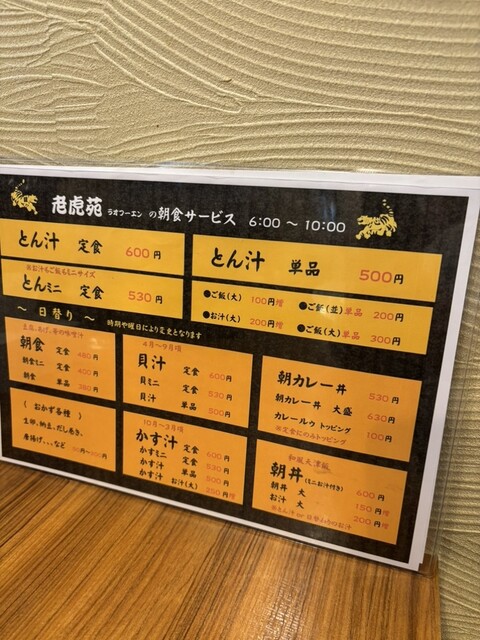 老虎苑 ラオフーエン の朝食サービス 6:00 ～ 10:00
とん汁 定食 600円
※お汁もご飯もミニサイズ
とんミニ 定食 530円
とん汁 単品 500円
●ご飯(大) 100円増
●お汁(大) 200円増
●ご飯(並)単品 200円
●ご飯(大)単品 300円
～ 日替り ～ 時期や曜日により変更となります
朝食 定食 480円
朝食ミニ 定食 430円
朝食 単品 380円
( おかず各種 )
生卵、納豆、だし巻き、
唐揚げ、、、など
4月～9月頃
貝汁 定食 600円
貝ミニ 定食 530円
貝汁 単品 500円
10月～3月頃
かす汁 定食 600円
かすミニ 定食 530円
かす汁 単品 500円
かす汁 お汁(大) 250円増
朝カレー丼 530円
朝カレー丼 大盛 630円
カレールウ トッピング 100円
※定食にのみトッピング
和風天津飯
朝丼 (ミニお汁付き) 600円
朝丼 大 150円増
お汁 大 200円増
※とん汁 or 日替わりのお汁